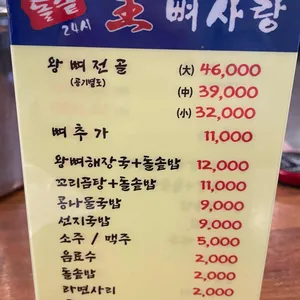 돌솥 24시 王 뼈사랑
왕뼈전골 (大) 46,000
(공기별도) (中) 39,000
(小) 32,000
뼈추가 11,000
왕뼈해장국+돌솥밥 12,000
꼬리곰탕+돌솥밥 11,000
콩나물국밥 9,000
선지국밥 9,000
소주 / 맥주 5,000
음료수 2,000
돌솥밥 2,000
라면사리 2,000